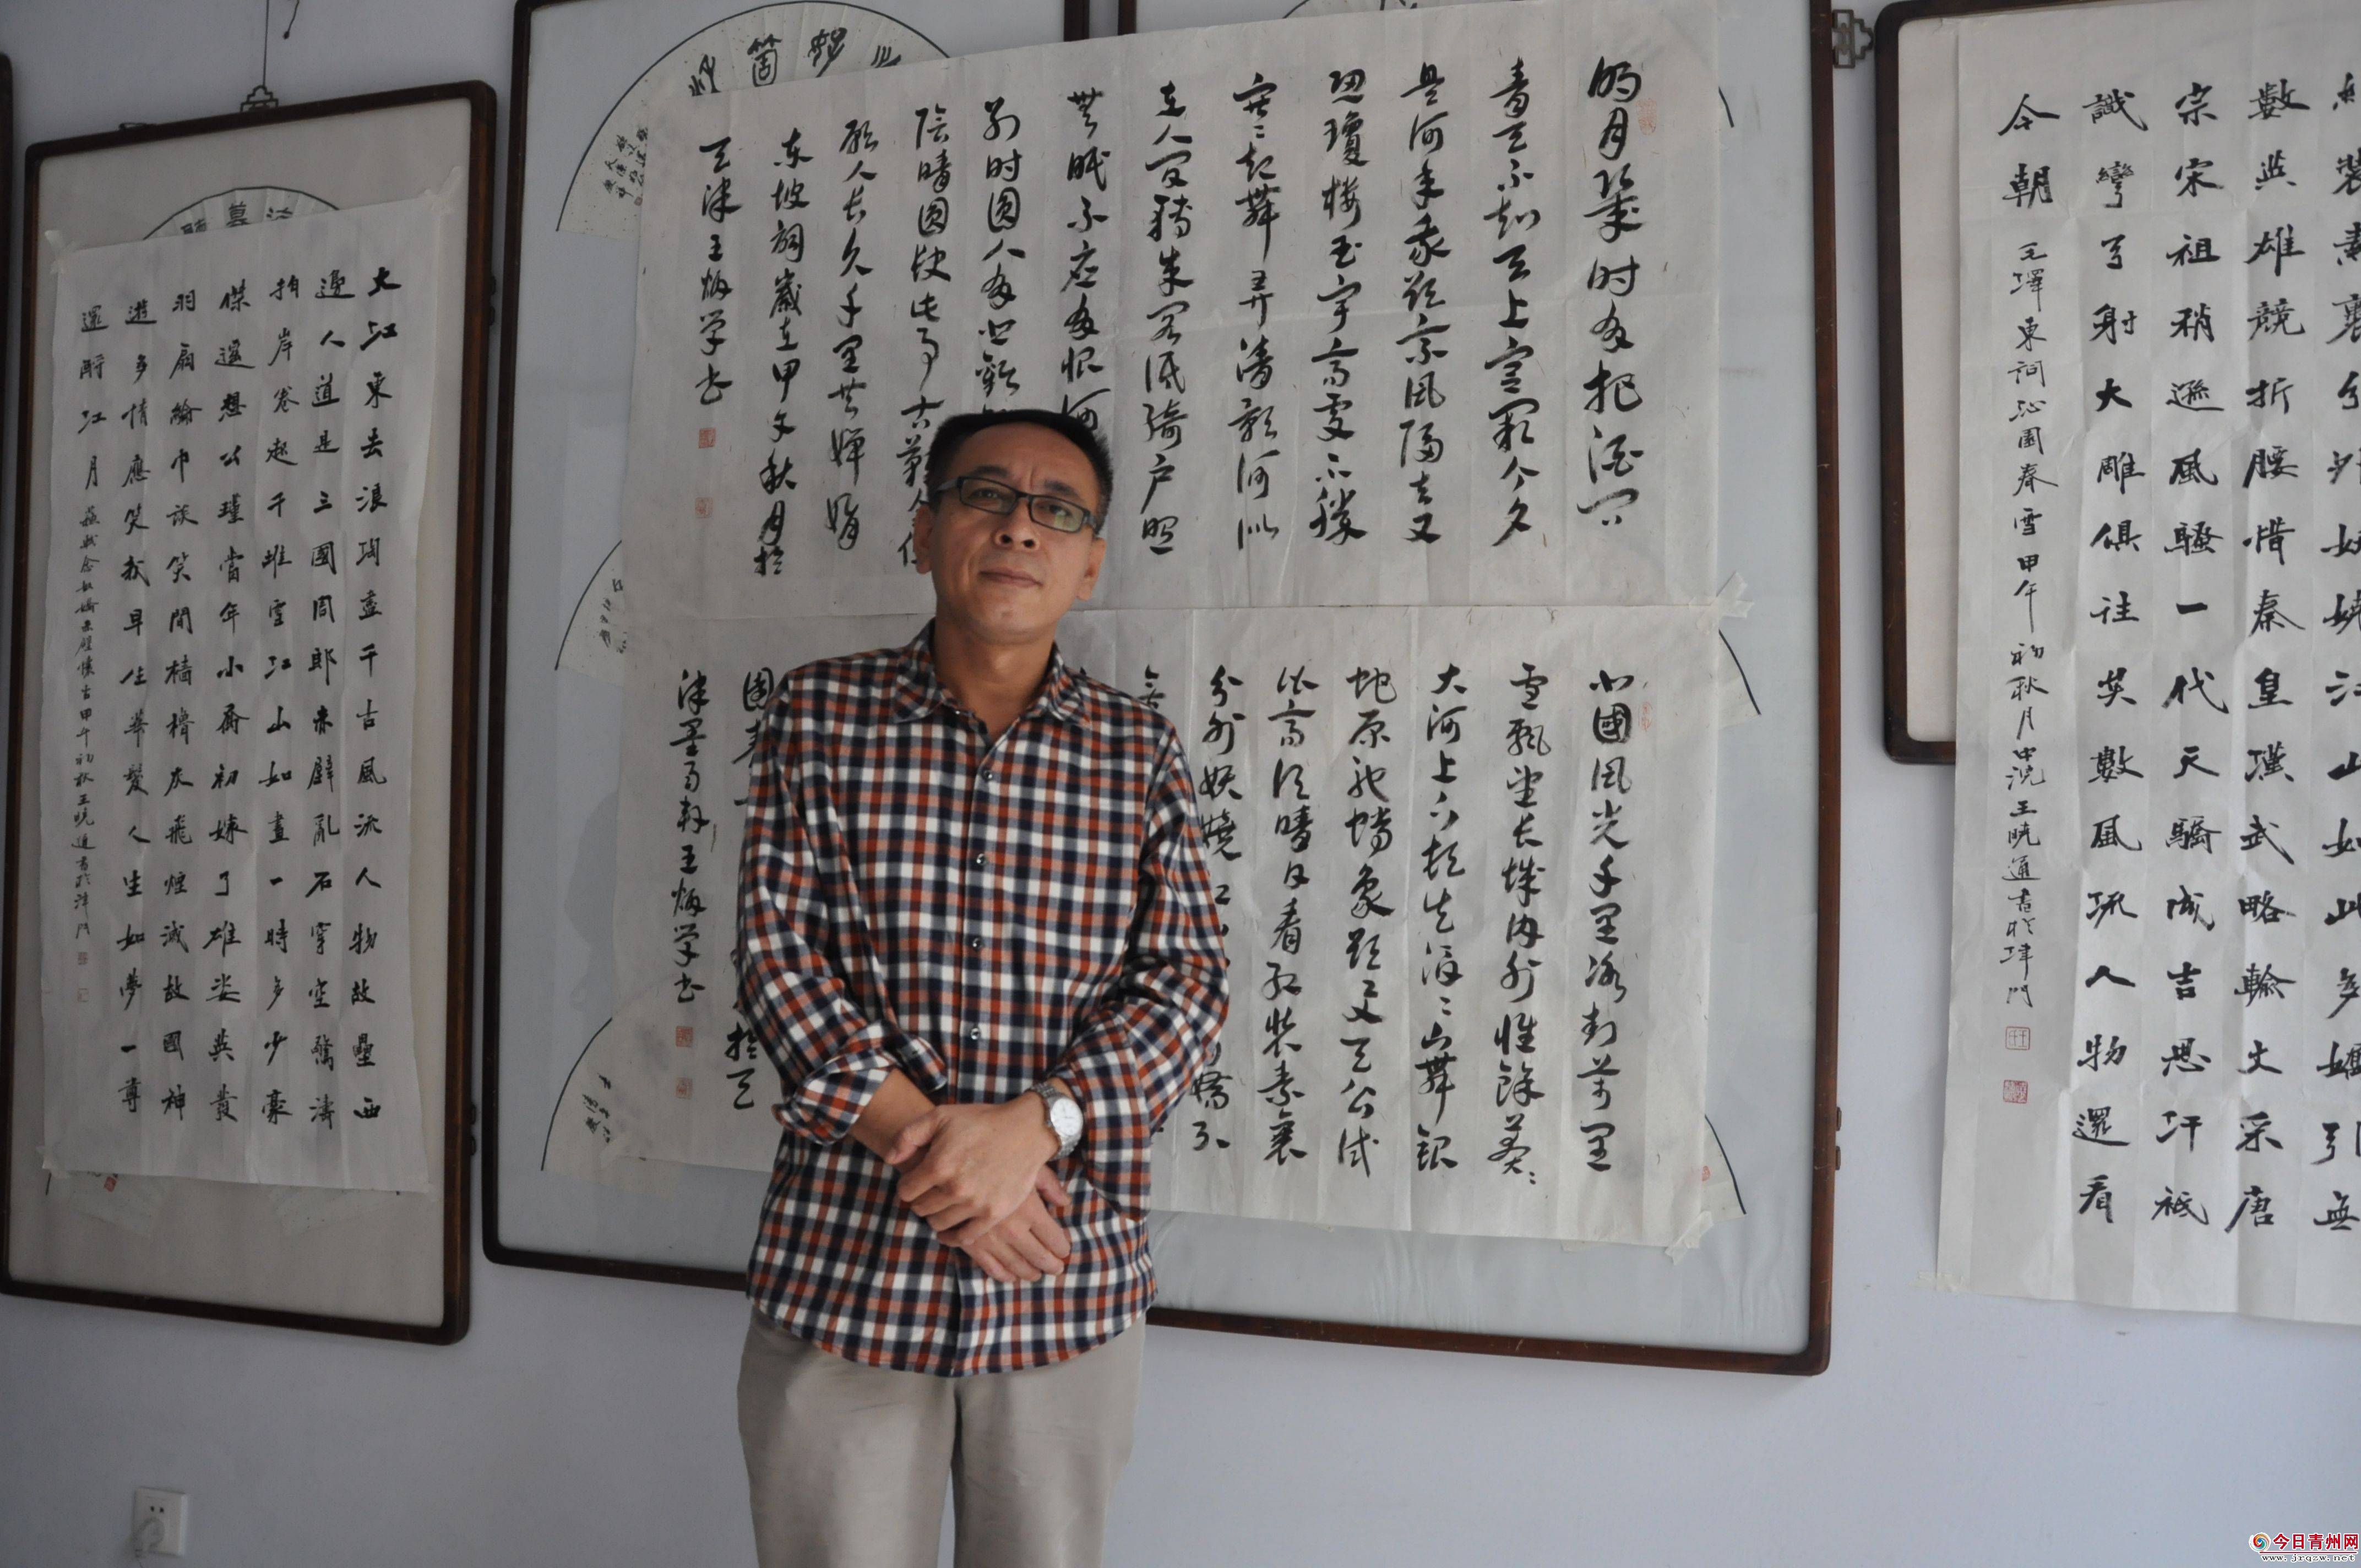 大江東去浪淘盡千古風流人物故壘西
邊人道是三國周郎赤壁亂石穿空驚濤
拍岸卷起千堆雪江山如畫一時多少豪
傑遥想公瑾當年小喬初嫁了雄姿英發
羽扇綸巾談笑間檣櫓灰飛煙滅故國神
遊多情應笑我早生華髮人生如夢一尊
還酹江月
蘇軾念奴嬌赤壁懷古甲午初秋王曉通書於津門
明月幾时有把酒问
青天不知天上宫阙今夕
是何年我欲乘风归去又
恐瓊楼玉宇高处不勝
寒〻起舞弄清影何似
在人间转朱阁低绮户照
無眠不应有恨何
别时圆人有悲歡
陰晴圆缺此事古難
願人长久千里共嬋娟
东坡詞歲在甲午秋月於
天津王炳学书
北國风光千里冰封万里
雪飘望长城内外惟餘莽〻
大河上下顿失滔〻山舞銀
蛇原驰蜡象欲与天公试
比高须晴日看红装素裹
分外妖娆江山
津墨雨轩王炳学书
裝素裹分外妖嬈江山如此多嬌引無
數英雄競折腰惜秦皇漢武略輸文采唐
宗宋祖稍遜風騷一代天驕成吉思汗祗
識彎弓射大雕俱往矣數風流人物還看
今朝
毛澤東詞沁園春雪甲午初秋月中浣王曉通書於津門
今日青州网
www.jrqzw.net